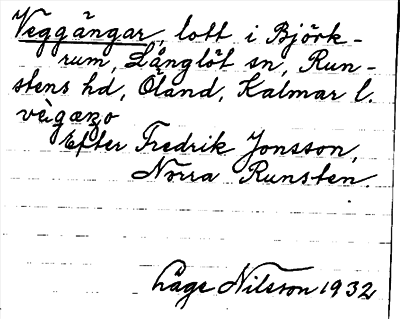 Veggängar, lott i Björk-
rum, Långlöt sn, Run-
stens hd, Öland, Kalmar l.
vègæŋo
Efter Fredrik Jonsson,
Norra Runsten.
Låge Nilsson 1932